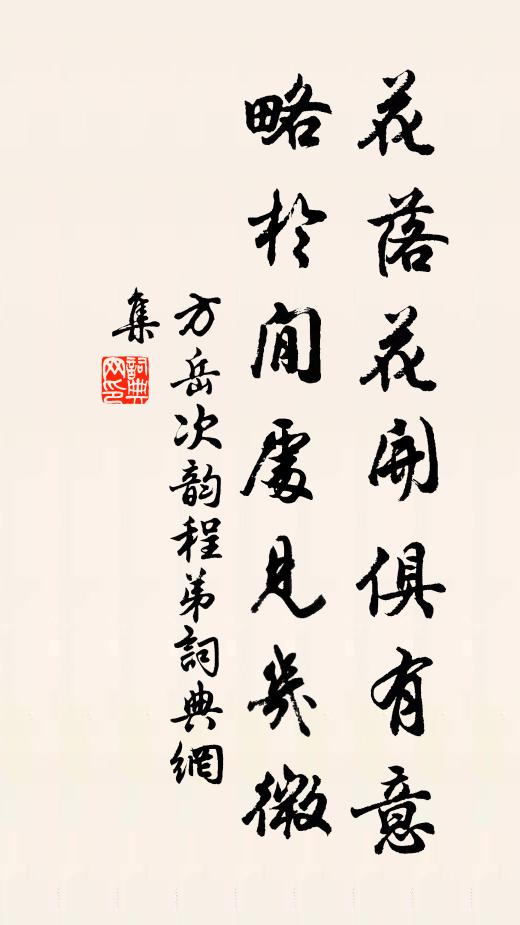 花落花開俱有意
略於閒處見幾微
方岳次韵程弟詞典網
集
詞典網印